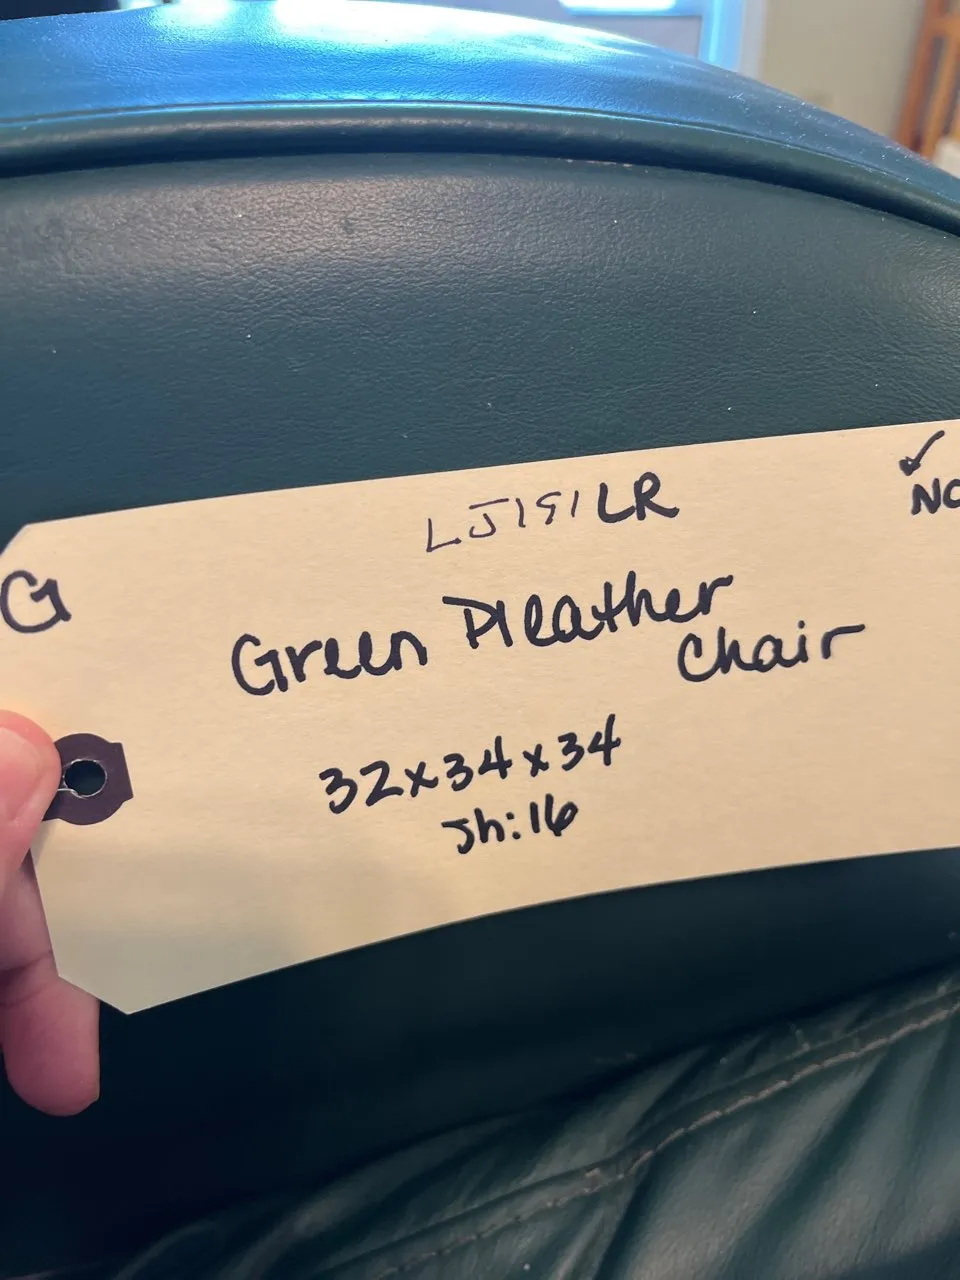 LJ191LR
NO
G
Green Pleather
Chair
32x34x34
Jh:16